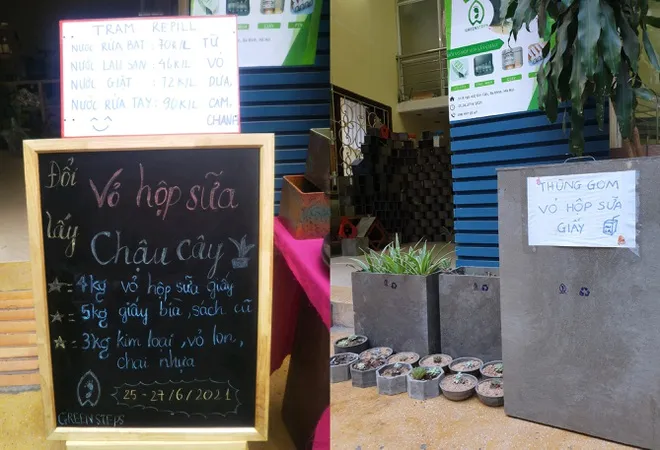 TRẠM REFILL
NƯỚC RỬA BÁT : 70K/L TỪ
NƯỚC LAU SÀN : 46K/L VỎ
NƯỚC GIẶT : 72K/L DỨA,
NƯỚC RỬA TAY : 90K/L CAM,
CHANH
Đổi
lấy
Vỏ hộp sữa
Chậu cây
4kg vỏ hộp sữa giấy
5kg giấy bìa, sách cũ
3kg kim loại, vỏ lon,
chai nhựa
25-27/6/2021
GREEN STEPS
THÙNG GOM
VỎ HỘP SỮA
GIẤY